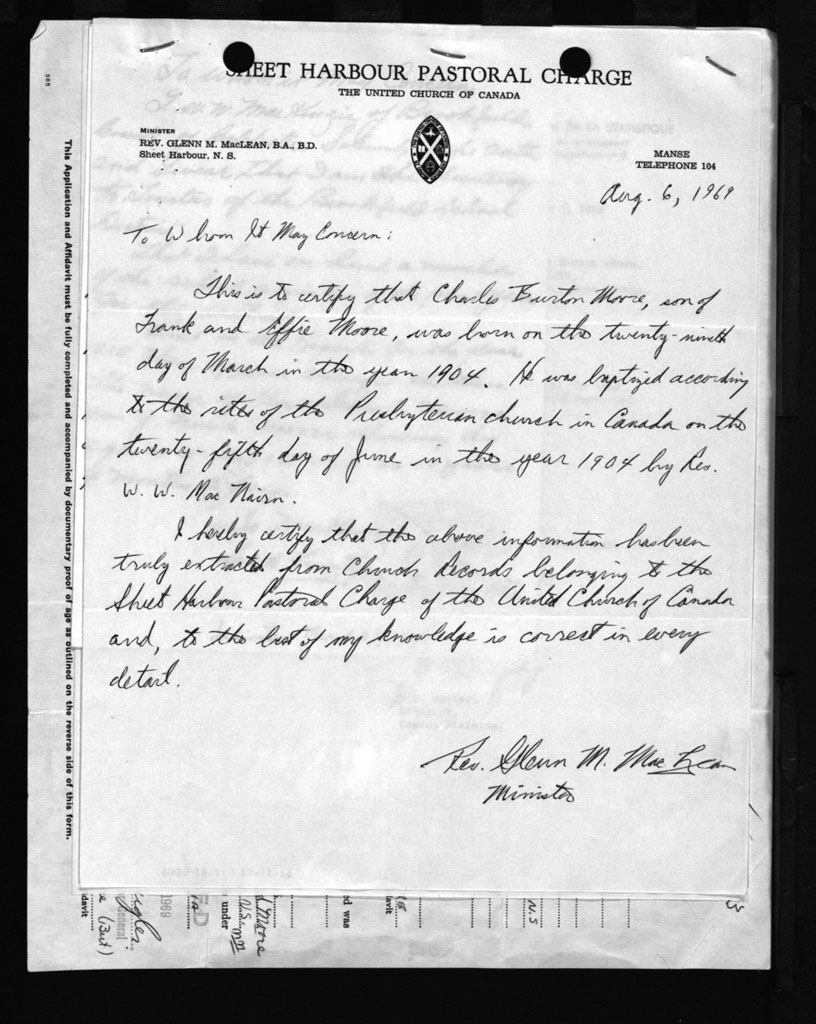 SHEET HARBOUR PASTORAL CHARGE
THE UNITED CHURCH OF CANADA
MINISTER
REV. GLENN M. MacLEAN, B.A., B.D.
Sheet Harbour, N. S.
MANSE
TELEPHONE 104
Aug. 6, 1969
To Whom It May Concern:
This is to certify that Charles Burton Moore, son of
Frank and Effie Moore, was born on the twenty-ninth
day of March in the year 1904. He was baptized according
to the rites of the Presbyterian church in Canada on the
twenty-fifth day of June in the year 1904 by Rev.
W. W. Mac Nairn.
I hereby certify that the above information has been
truly extracted from Church Records belonging to the
Sheet Harbour Pastoral Charge of the United Church of Canada
and, to the best of my knowledge is correct in every
detail.
Rev. Glenn M. MacLean
Minister
This Application and Affidavit must be fully completed and accompanied by documentary proof of age as outlined on the reverse side of this form.
davit
General
1969
under
Moore
N.S.
ed was
davit
N.S